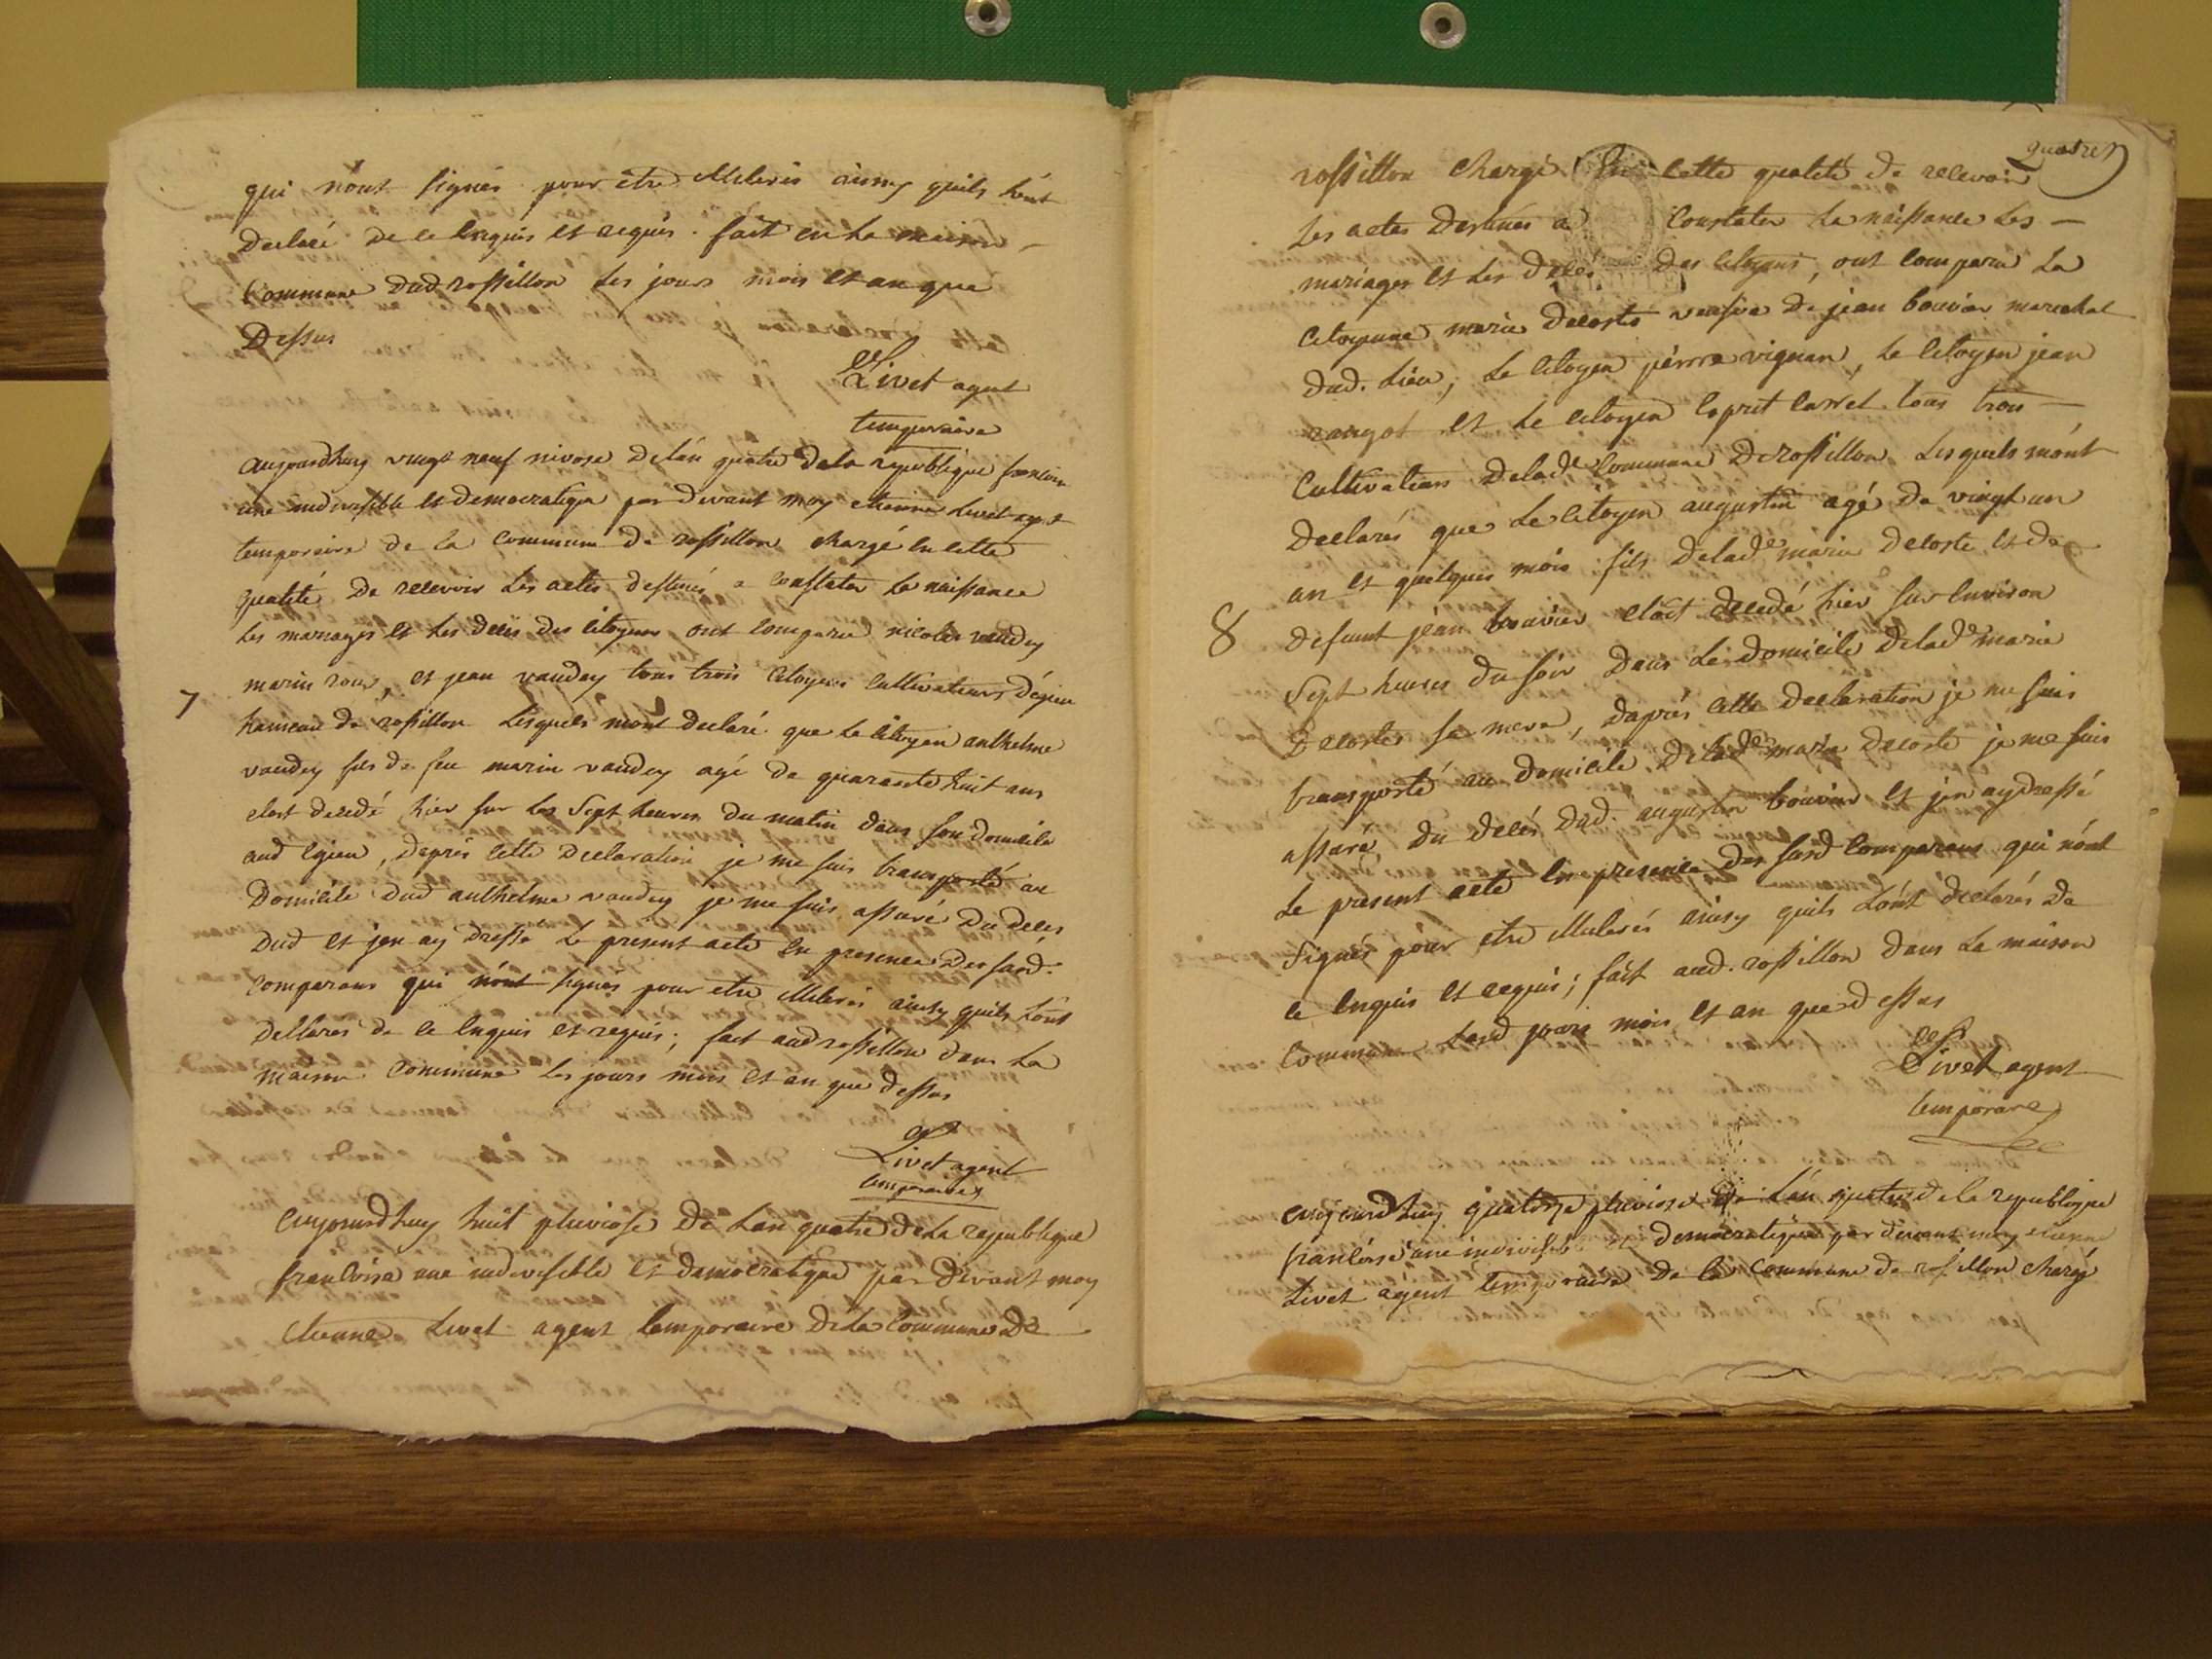 qui n'ont signés pour être illiterés ainsy quils l'ont
declaré de ce enquis et requis. fait en la maison
Commune dud rossillon les jours mois et an que
Dessus
Livet agent
temporaire
aujourdhuy vingt neuf nivose de l'an quatre de la republique francoise
une indivisible et democratique par devant moy etienne Livet agent
temporaire de la Commune de rossillon chargé en cette
qualité de recevoir les actes destinés a constater la naissance
les mariages et les decès des citoyens ont comparu nicolas vaudey
marin roux, et jean vaudey tous trois citoyens cultivateurs d'égieu
7 hameau de rossillon lesquels mont declaré que le citoyen anthelme
vaudey fils de feu marin vaudey agé de quarante huit ans
etoit decedé hier sur les Sept heures du matin dans son domicile
aud Egieu, daprès cette declaration je me suis transporté au
Domicile dud anthelme vaudey je me suis assuré du decés
dud et jen ay dressé le present acte en presence des susd.
comparans qui n'ont signés pour etre illiterés ainsy quils l'ont
declarés de ce enquis et requis; fait aud rossillon dans la
maison commune les jours mois et an que dessus
Livet agent
temporaire
aujourdhuy huit pluviose de lan quatre de la republique
francoise une indivisible et democratique par devant moy
etienne Livet agent temporaire de la Commune de
quatre
rossillon chargé En cette qualité de recevoir
les actes destinés a Constater la naissance les
mariages et les decés des citoyens, ont comparu la
Citoyenne marie decoste veusve de jean bouvier marechal
dud. lieu, le citoyen pierre vignan, le citoyen jean
rangot et le citoyen Esprit Carrel tous trois
Cultivateurs de lade Commune De rossillon lesquels mont
Declarés que le citoyen augustin agé de vingt un
an et quelques mois fils de lade marie decoste et de
8 defunt jean bouvier etoit decedé hier sur environ
Sept heures du soir dans le domicile de lade marie
Decoste sa mere, daprès cette declaration je me suis
transporté au domicile de lade marie decoste je me suis
assuré du decés dud. augustin bouvier et jen ay dressé
le present acte en presence des susd comparans qui n'ont
signés pour etre illiterés ainsy quils l'ont declarés de
ce enquis et requis; fait aud. rossillon dans la maison
Commune lesd jours mois et an que dessus
Livet agent
temporaire
aujourdhuy quatorze pluviose de l'an quatre de la republique
francoise une indivisible et democratique par devant moy etienne
Livet agent temporaire de la Commune de rossillon chargé